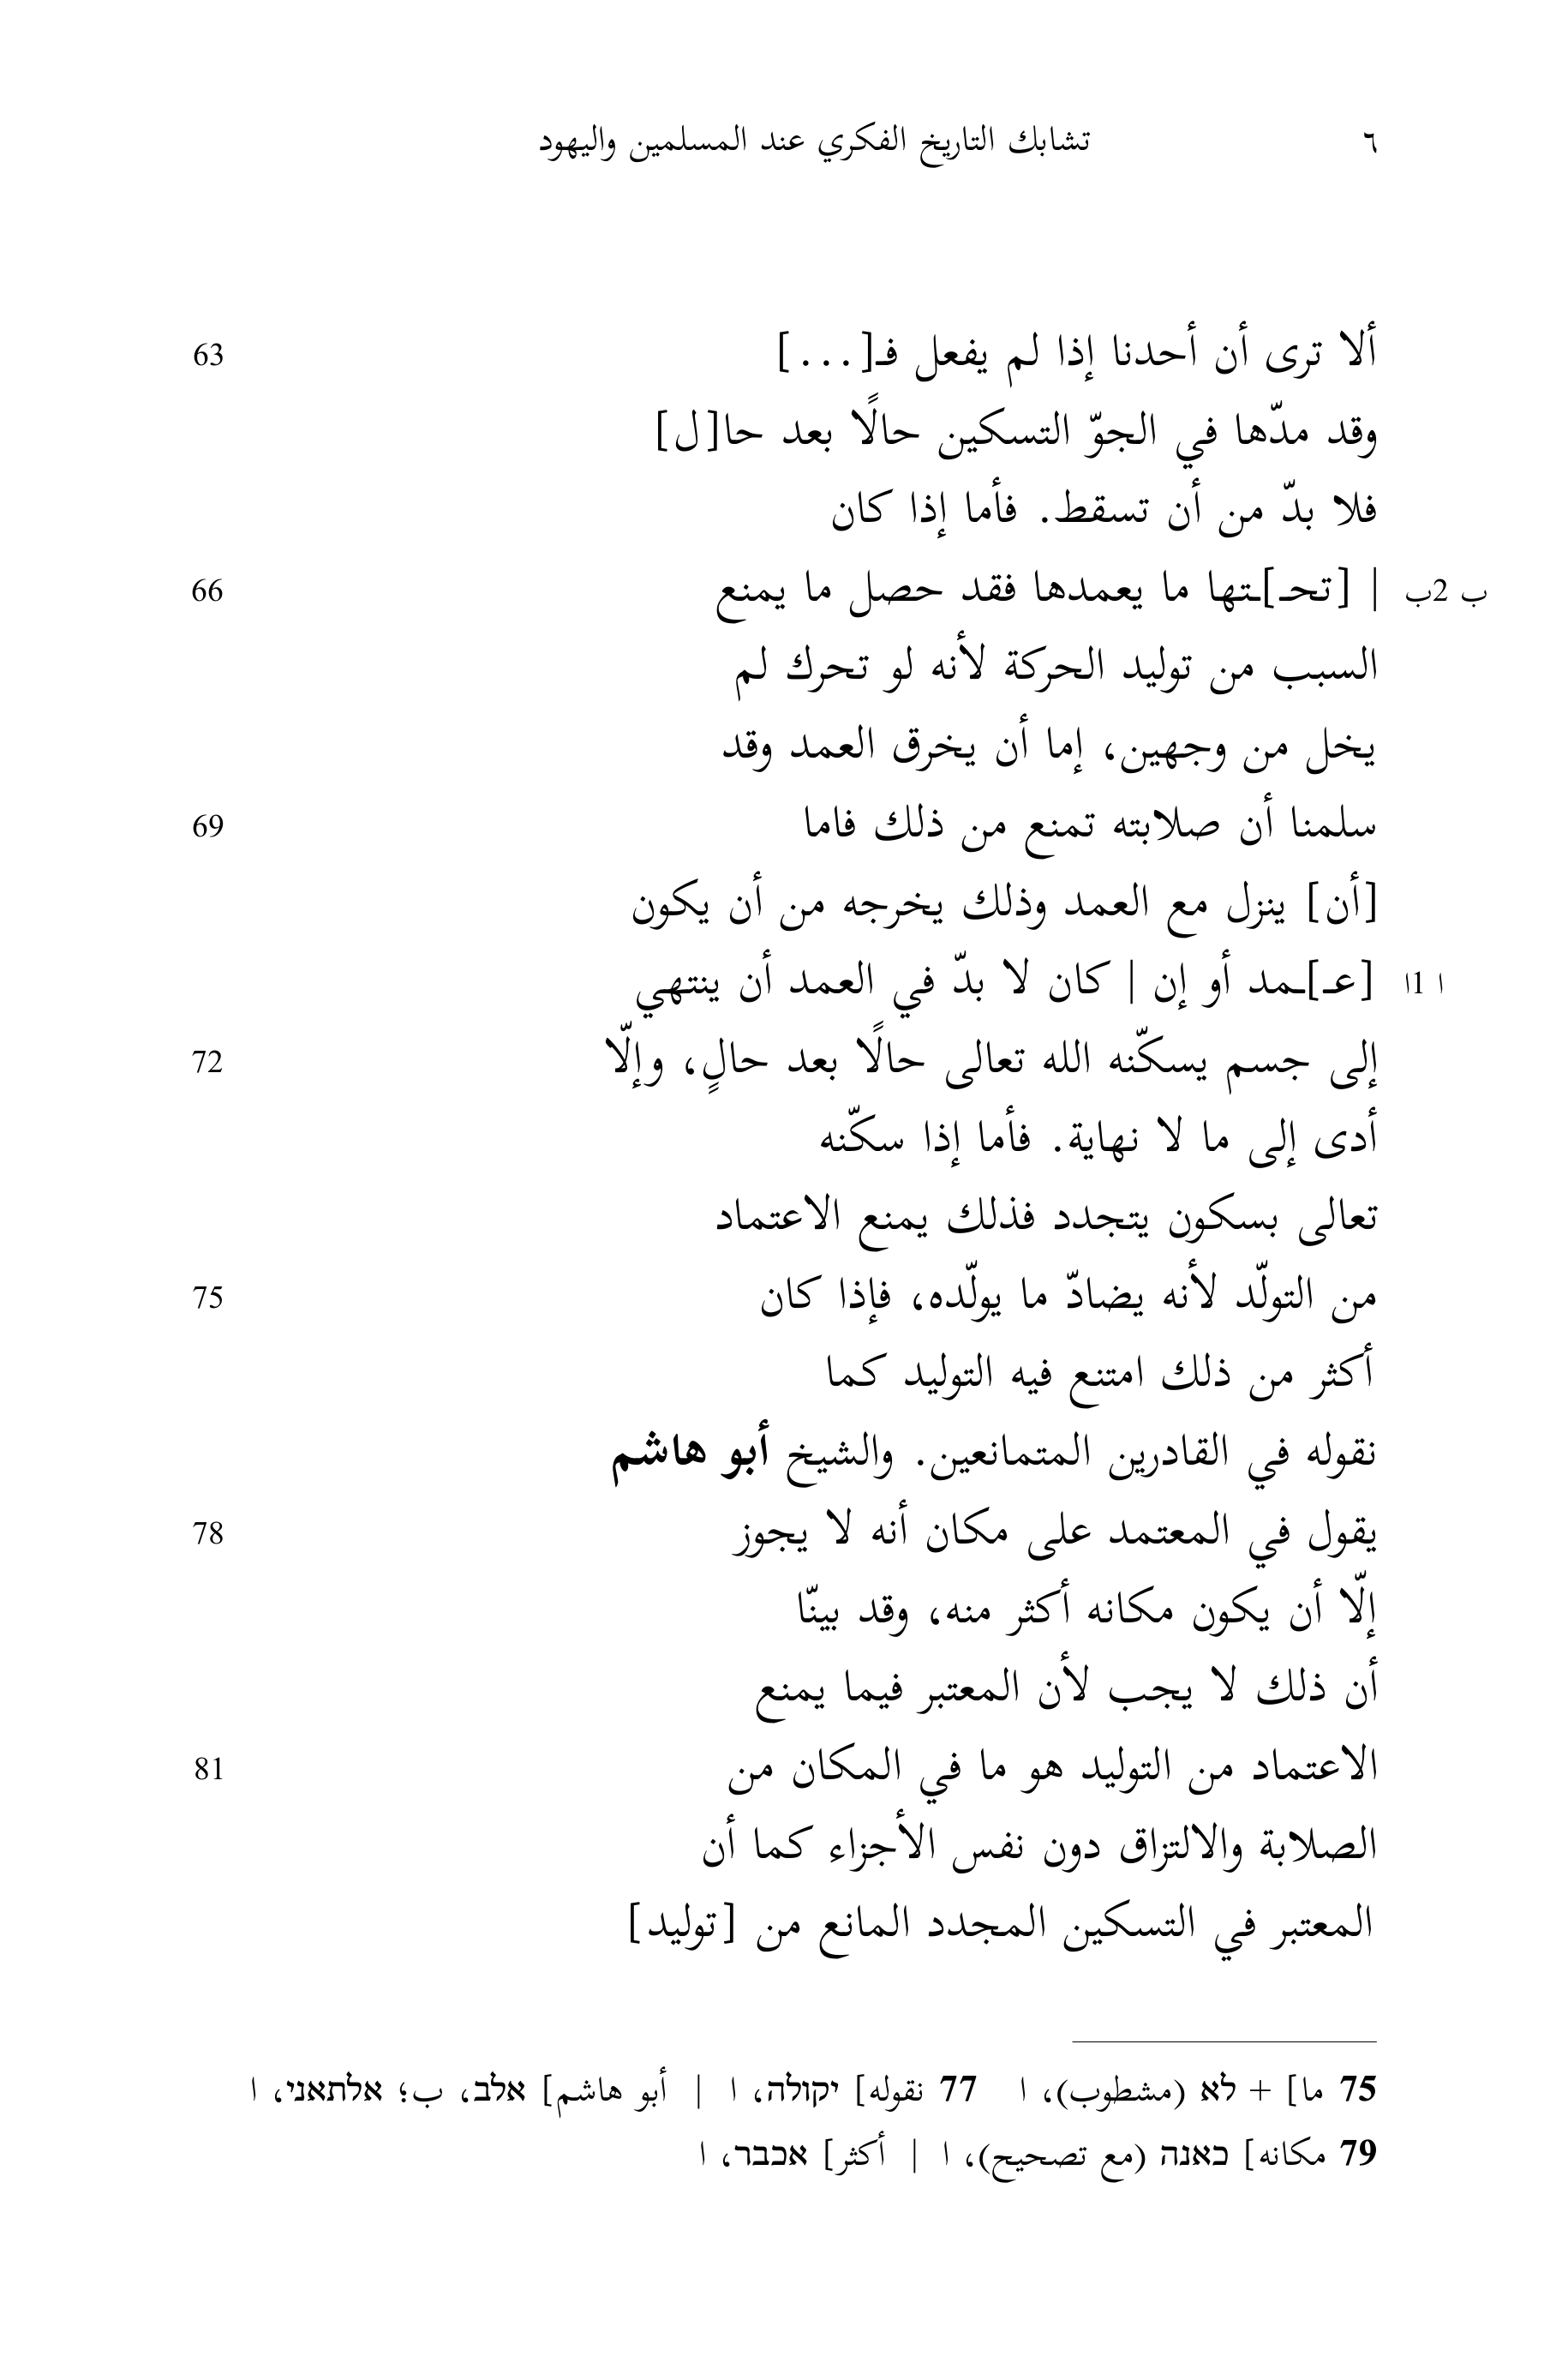 ٦ تشابك التاريخ الفكري عند المسلمين واليهود
ألا ترى أن أحدنا إذا لم يفعل فـ[...] 63
وقد مدّها في الجوّ التسكين حالًا بعد حا[ل]
فلا بدّ من أن تسقط. فأما إذا كان
ب 2ب | [تحـ]ـتها ما يعمدها فقد حصل ما يمنع 66
السبب من توليد الحركة لأنه لو تحرك لم
يخل من وجهين، إما أن يخرق العمد وقد
سلمنا أن صلابته تمنع من ذلك فاما 69
[أن] ينزل مع العمد وذلك يخرجه من أن يكون
ا 1ا [عـ]ـمد أو إن | كان لا بدّ في العمد أن ينتهي
إلى جسم يسكّنه الله تعالى حالًا بعد حالٍ، وإلّا 72
أدى إلى ما لا نهاية. فأما إذا سكّنه
تعالى بسكون يتجدد فذلك يمنع الاعتماد
من التولّد لأنه يضادّ ما يولّده، فإذا كان 75
أكثر من ذلك امتنع فيه التوليد كما
نقوله في القادرين المتمانعين. والشيخ أبو هاشم
يقول في المعتمد على مكان أنه لا يجوز 78
إلّا أن يكون مكانه أكثر منه، وقد بينّا
أن ذلك لا يجب لأن المعتبر فيما يمنع
الاعتماد من التوليد هو ما في المكان من 81
الصلابة والالتزاق دون نفس الأجزاء كما أن
المعتبر في التسكين المجدد المانع من [توليد]
75 ما] + לא (مشطوب)، ا 77 نقوله] יקולה، ا | أبو هاشم] אלב، ب؛ אלתאני، ا
79 مكانه] כאנה (مع تصحيح)، ا | أكثر] אכבר، ا